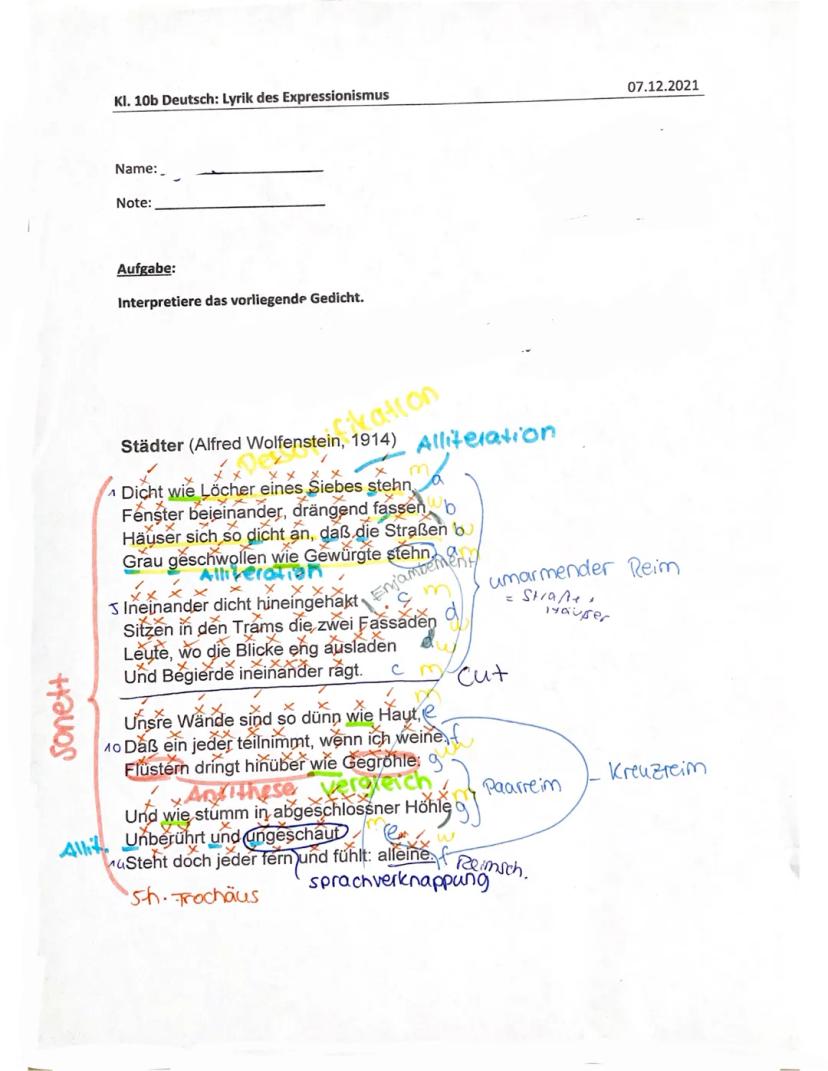 Kl. 10b Deutsch: Lyrik des Expressionismus
07.12.2021
Name:
Note:
Aufgabe:
Interpretiere das vorliegende Gedicht.
Personifikation
Städter (Alfred Wolfenstein, 1914)
Alliteration
1 Dicht wie Löcher eines Siebes stehn m a
Fenster beieinander, drängend fassen w b
Häuser sich so dicht an, daß die Straßen b w
Grau geschwollen wie Gewürgte stehn. a m
Alliteration
Enjambement
umarmender Reim
= Straße, Häuser
5 Ineinander dicht hineingehakt c m
Sitzen in den Trams die zwei Fassaden d w
Leute, wo die Blicke eng ausladen d w
Und Begierde ineinander ragt. c m
Cut
Sonett
Unsre Wände sind so dünn wie Haut, e m
10 Daß ein jeder teilnimmt, wenn ich weine, f w
Flüstern dringt hinüber wie Gegröhle: g w
Antithese Vergleich
Paarreim
Kreuzreim
Und wie stumm in abgeschlossner Höhle g w
Allit. Unberührt und ungeschaut m e
14 Steht doch jeder fern und fühlt: alleine. f w
Reimsch.
sprachverknappung
5h. Trochäus